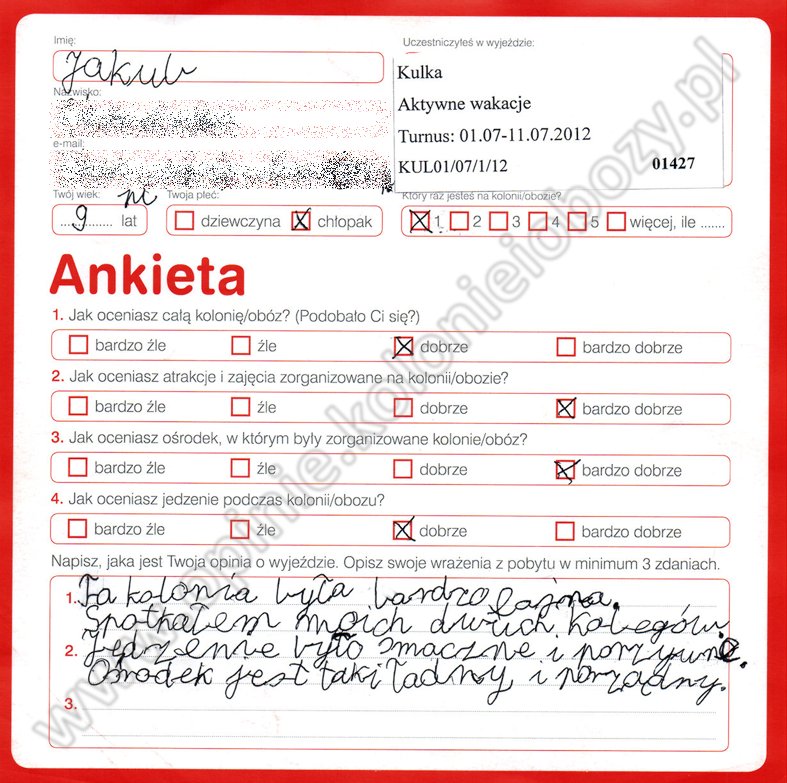 Imię:
Jakub
Uczestniczyłeś w wyjeździe:
Kulka
Aktywne wakacje
Turnus: 01.07-11.07.2012
KUL01/07/1/12 01427
Nazwisko:
e-mail:
pl
Twój wiek:
9 lat
Twoja płeć:
dziewczyna X chłopak
Który raz jesteś na kolonii/obozie?
X 1 2 3 4 5 więcej, ile .......
Ankieta
1. Jak oceniasz całą kolonię/obóz? (Podobało Ci się?)
bardzo źle źle X dobrze bardzo dobrze
2. Jak oceniasz atrakcje i zajęcia zorganizowane na kolonii/obozie?
bardzo źle źle dobrze X bardzo dobrze
3. Jak oceniasz ośrodek, w którym były zorganizowane kolonie/obóz?
bardzo źle źle dobrze X bardzo dobrze
4. Jak oceniasz jedzenie podczas kolonii/obozu?
bardzo źle źle X dobrze bardzo dobrze
Napisz, jaka jest Twoja opinia o wyjeździe. Opisz swoje wrażenia z pobytu w minimum 3 zdaniach.
1. Ta kolonia była bardzo fajna.
Spotkałem moich dwuch kolegów.
2. Jedzenie było smaczne i porzywne.
Ośrodek jest taki ładny i porządny.
3.
www.opinie.kolonieiobozy.pl